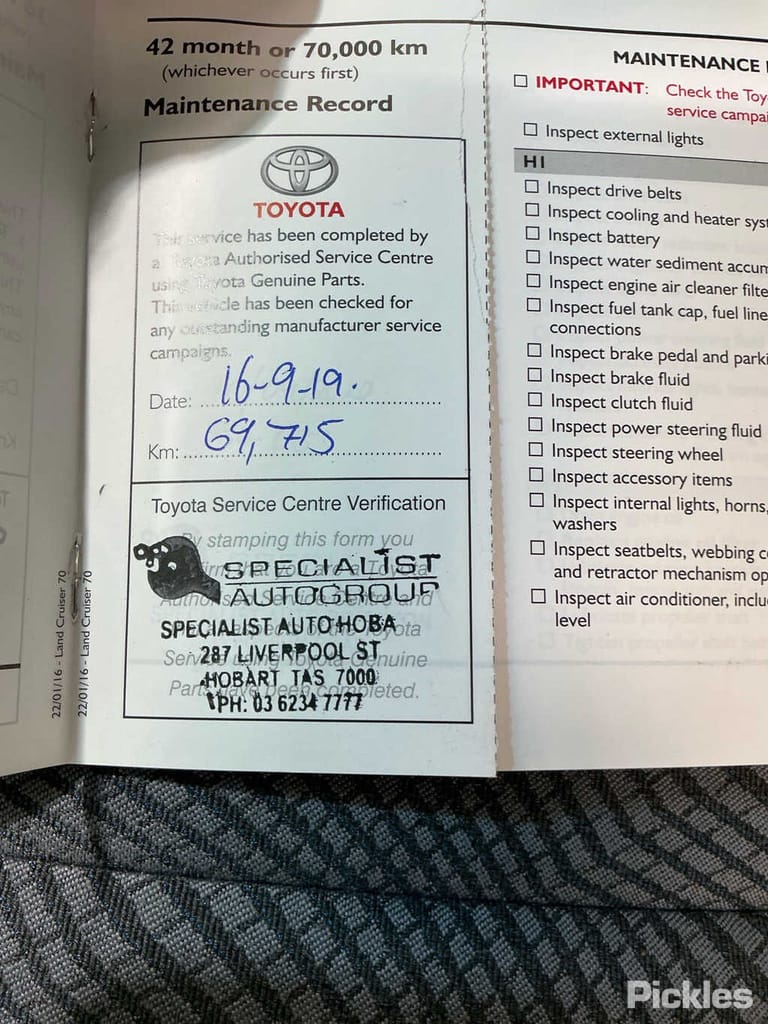 42 month or 70,000 km
(whichever occurs first)
Maintenance Record
TOYOTA
This service has been completed by
a Toyota Authorised Service Centre
using Toyota Genuine Parts.
This vehicle has been checked for
any outstanding manufacturer service
campaigns.
Date: 16-9-19.
Km: 69,715
Toyota Service Centre Verification
By stamping this form you
SPECIALIST
AUTOGROUP
SPECIALIST AUTO HOBA
287 LIVERPOOL ST
HOBART TAS 7000
PH: 03 6234 7777
Service using Toyota Genuine
Parts have been completed.
22/01/16 - Land Cruiser 70
22/01/16 - Land Cruiser 70
MAINTENANCE
IMPORTANT: Check the Toy
service campai
Inspect external lights
HI
Inspect drive belts
Inspect cooling and heater syst
Inspect battery
Inspect water sediment accum
Inspect engine air cleaner filte
Inspect fuel tank cap, fuel line
connections
Inspect brake pedal and parki
Inspect brake fluid
Inspect clutch fluid
Inspect power steering fluid
Inspect steering wheel
Inspect accessory items
Inspect internal lights, horns,
washers
Inspect seatbelts, webbing co
and retractor mechanism op
Inspect air conditioner, inclu
level
Pickles